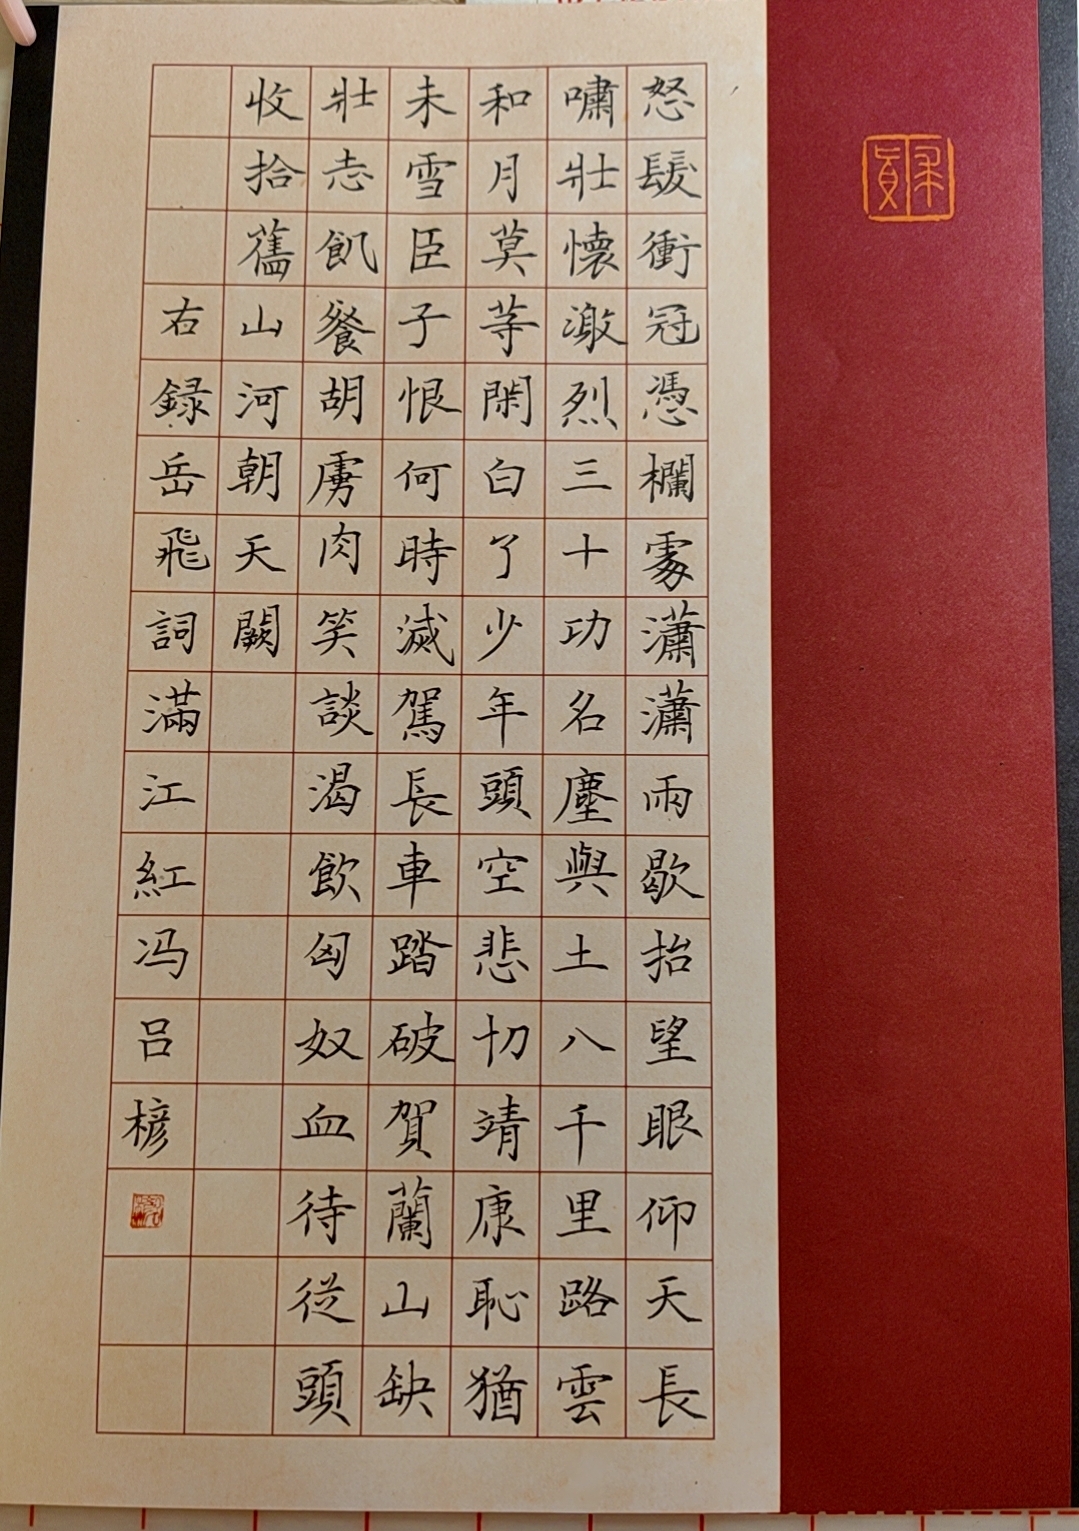 怒髮衝冠憑欄處瀟瀟雨歇抬望眼仰天長
嘯壯懷激烈三十功名塵與土八千里路雲
和月莫等閑白了少年頭空悲切靖康恥猶
未雪臣子恨何時滅駕長車踏破賀蘭山缺
壯志飢餐胡虜肉笑談渴飲匈奴血待從頭
收拾舊山河朝天闕
右録岳飛詞滿江紅冯吕㮙